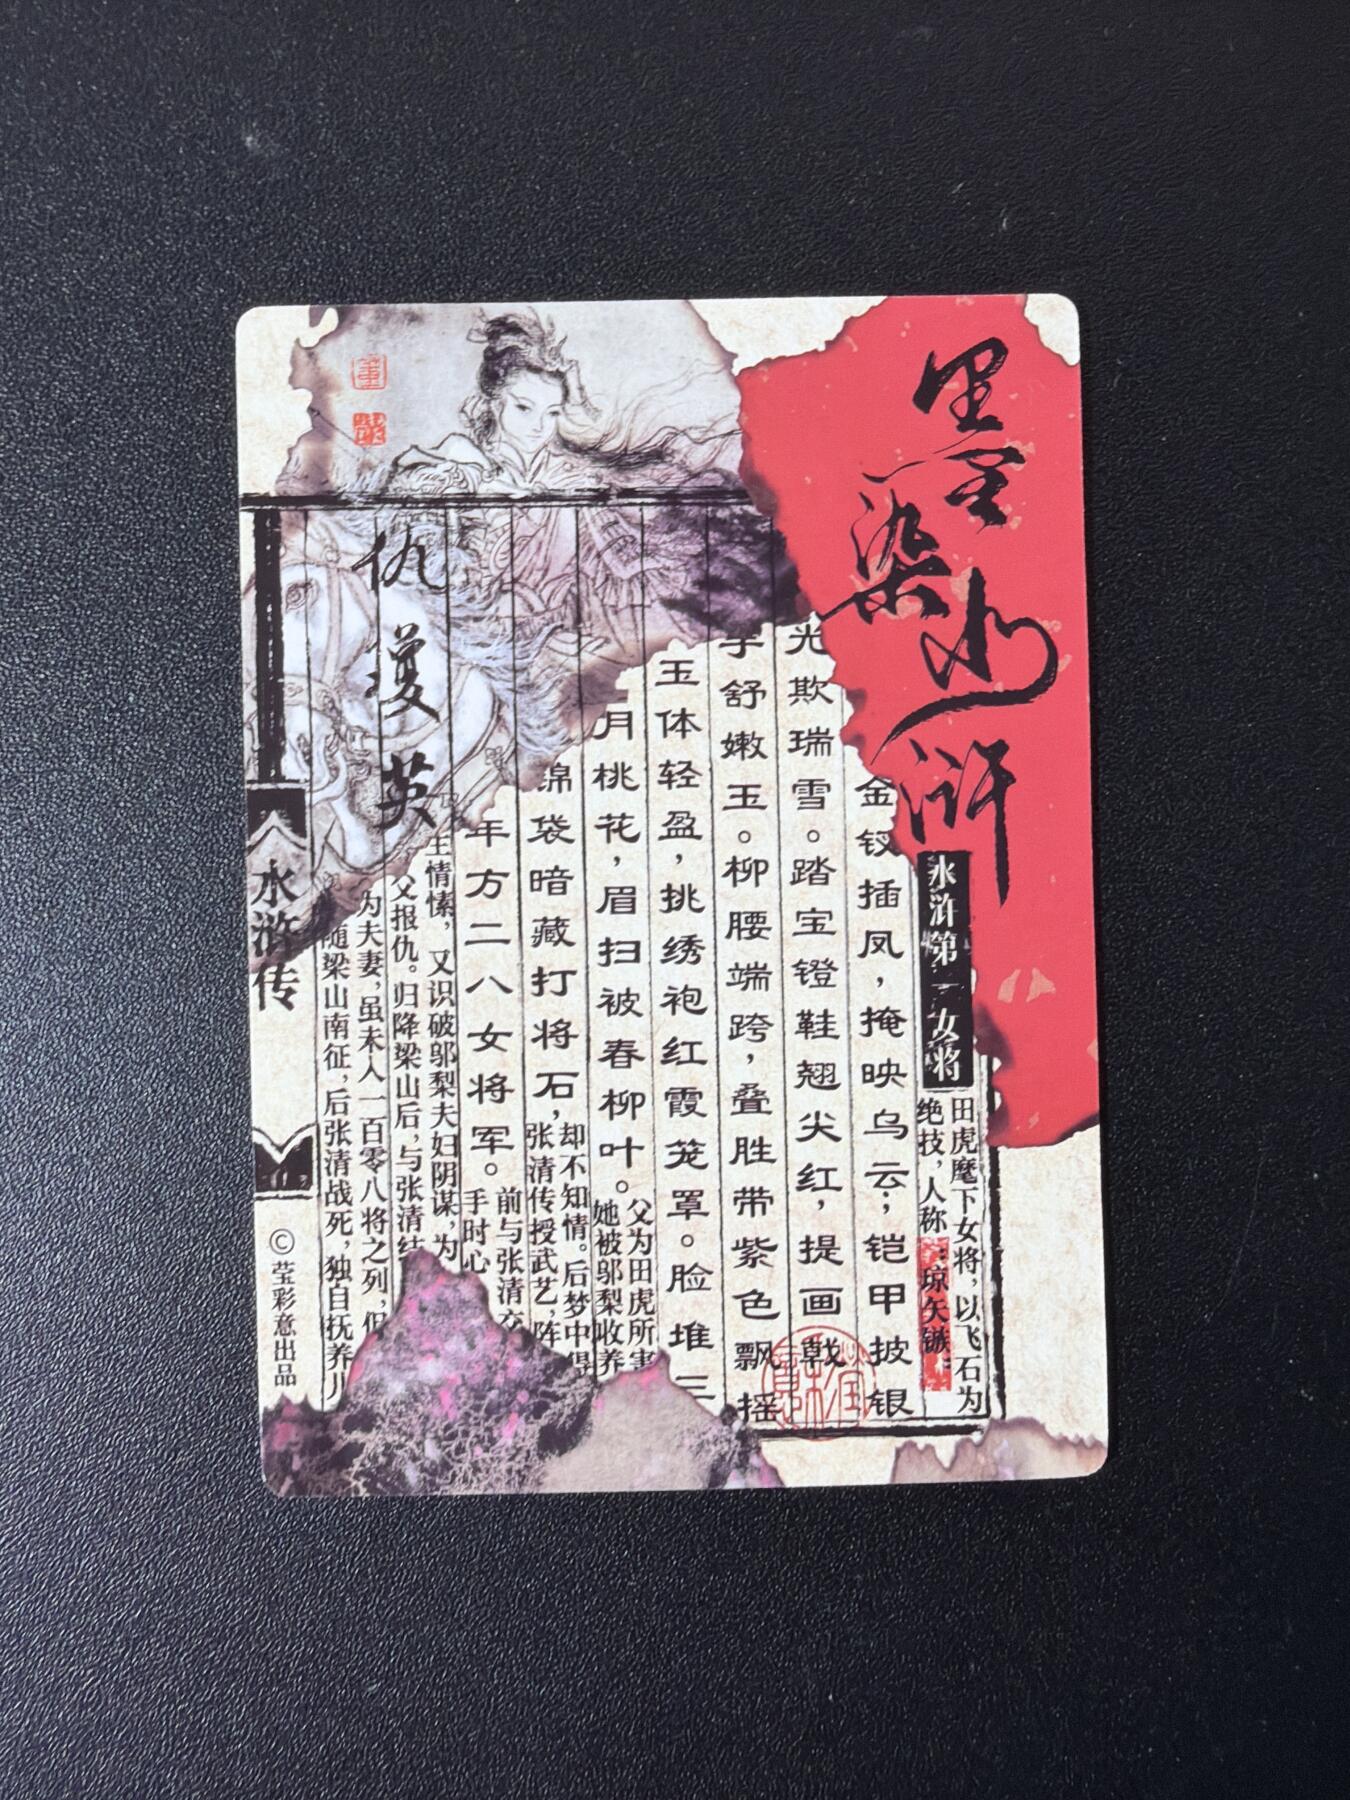 墨染水浒
水浒第一女将
田虎麾下女将，以飞石为
绝技，人称：琼矢镞：
金钗插凤，掩映乌云；铠甲披银
光欺瑞雪。踏宝镫鞋翘尖红，提画戟
手舒嫩玉。柳腰端跨，叠胜带紫色飘摇
玉体轻盈，挑绣袍红霞笼罩。脸堆三
月桃花，眉扫被春柳叶。
锦袋暗藏打将石，
年方二八女将军。
父为田虎所害
她被邬梨收养
却不知情。后梦中得
张清传授武艺，阵
前与张清交
手时心
生情愫，又识破邬梨夫妇阴谋，为
父报仇。归降梁山后，与张清结
为夫妻，虽未入一百零八将之列，但
随梁山南征，后张清战死，独自抚养儿
仇琼英
水浒传
©莹彩意出品